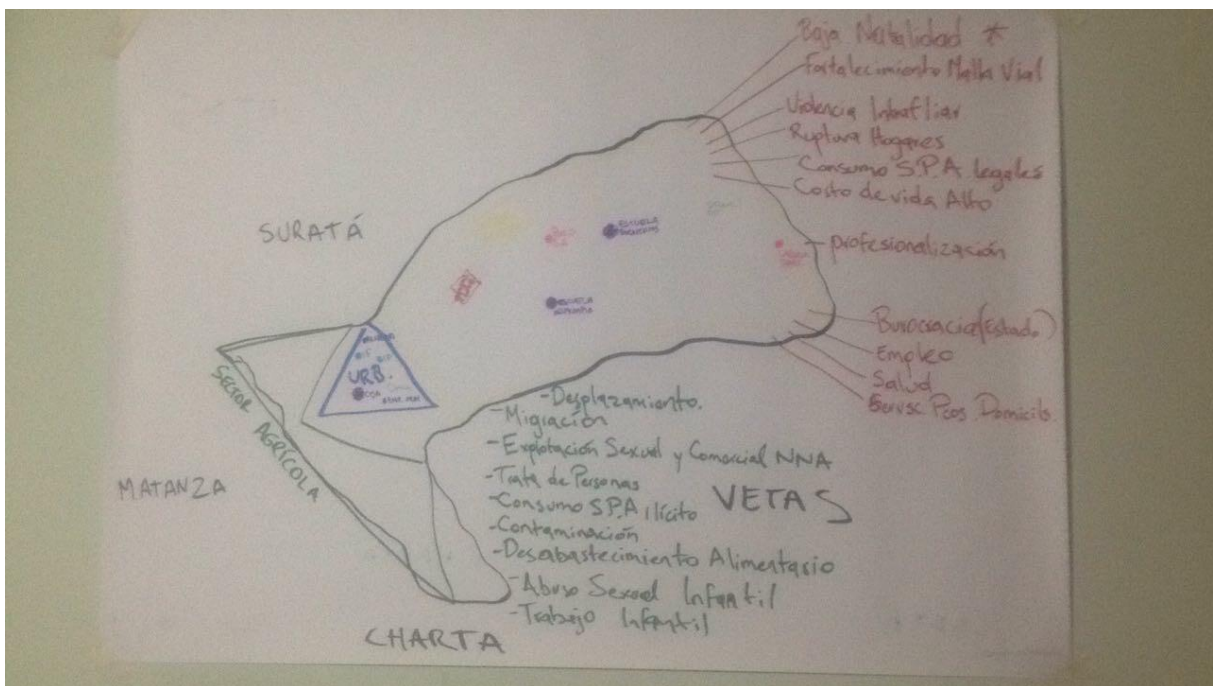 Baja Natalidad *
Fortalecimiento Malla Vial
Violencia Intrafliar
Ruptura Hogares
Consumo S.P.A legales
Costo de vida Alto
profesionalización
Burocracia (Estado)
Empleo
Salud
Domicils.
SURATÁ
ESCUELA
ESCUELA
URB.
SECTOR AGRÍCOLA
MATANZA
- Desplazamiento.
- Migración
- Explotación Sexual y Comercial NNA
- Trata de Personas
- Consumo S.P.A ilícito
- Contaminación
- Desabastecimiento Alimentario
- Abuso Sexual Infantil
- Trabajo Infantil
VETAS
CHARTA